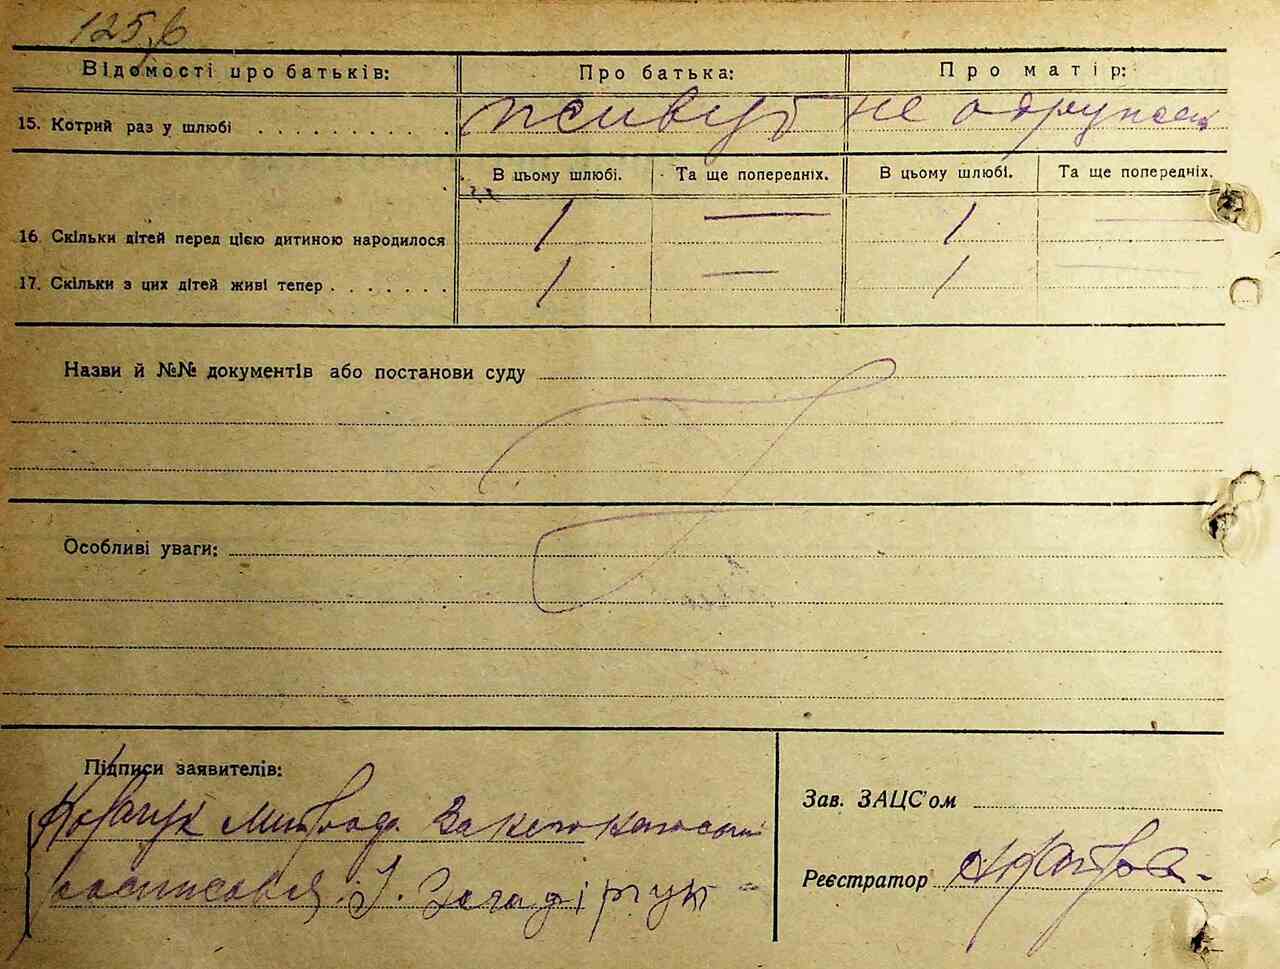 125,6
Відомості про батьків: Про батька: Про матір:
15. Котрий раз у шлюбі . . . . . . . . . . живут не одружені
В цьому шлюбі. Та ще попередніх. В цьому шлюбі. Та ще попередніх.
16. Скільки дітей перед цією дитиною народилося 1 — 1 —
17. Скільки з цих дітей живі тепер . . . . . . . 1 — 1 —
Назви й №№ документів або постанови суду
Особливі уваги:
Підписи заявителів:
Зав. ЗАЦС'ом
Ковачук за
росписовся І.
Реєстратор